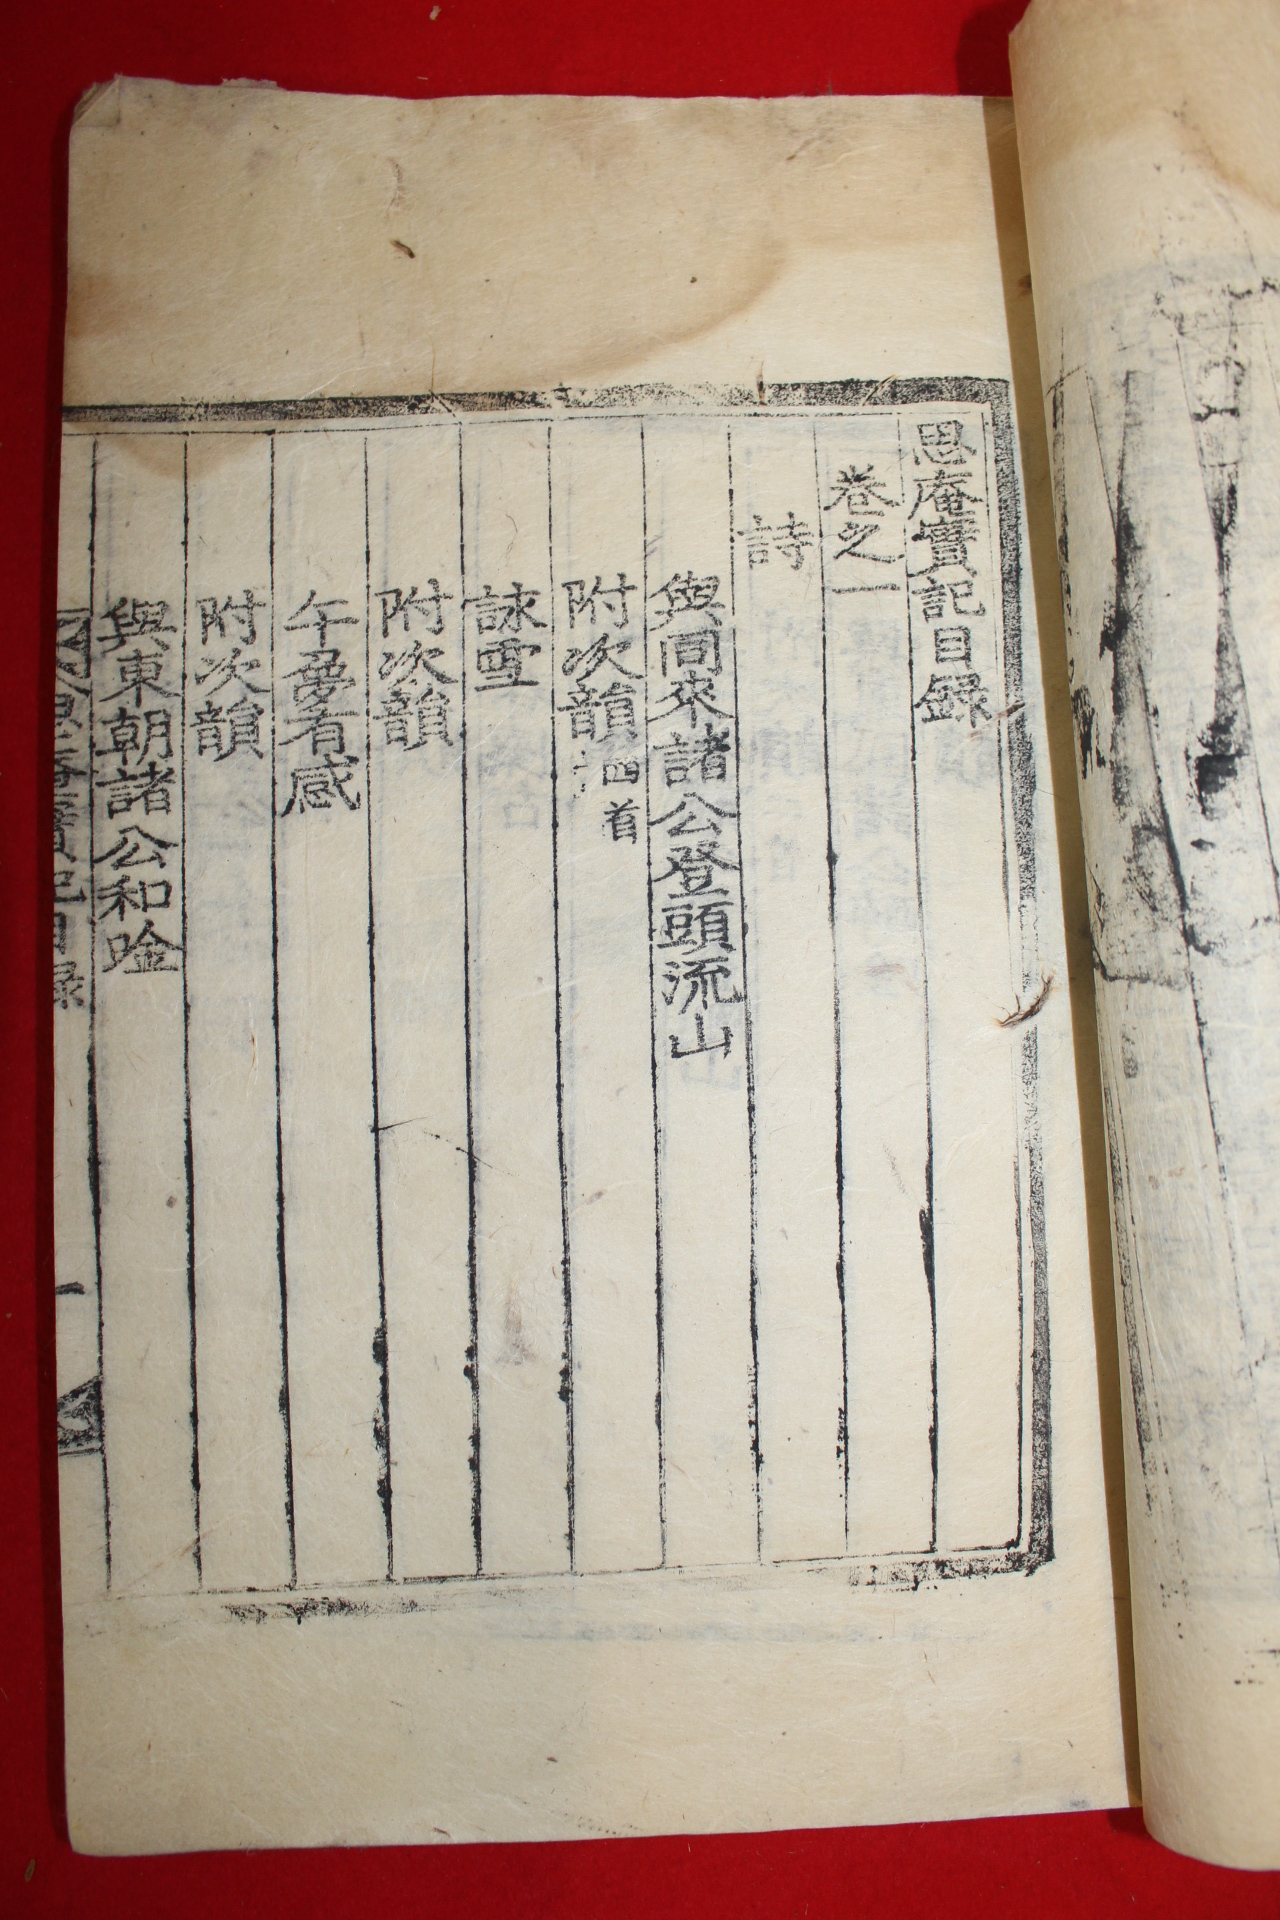 思庵實記目録
卷之一
詩
與同來諸公登頭流山
附次韻 四首
詠雪
附次韻
午夢有感
附次韻
與東朝諸公和唫
思庵實記目録
一